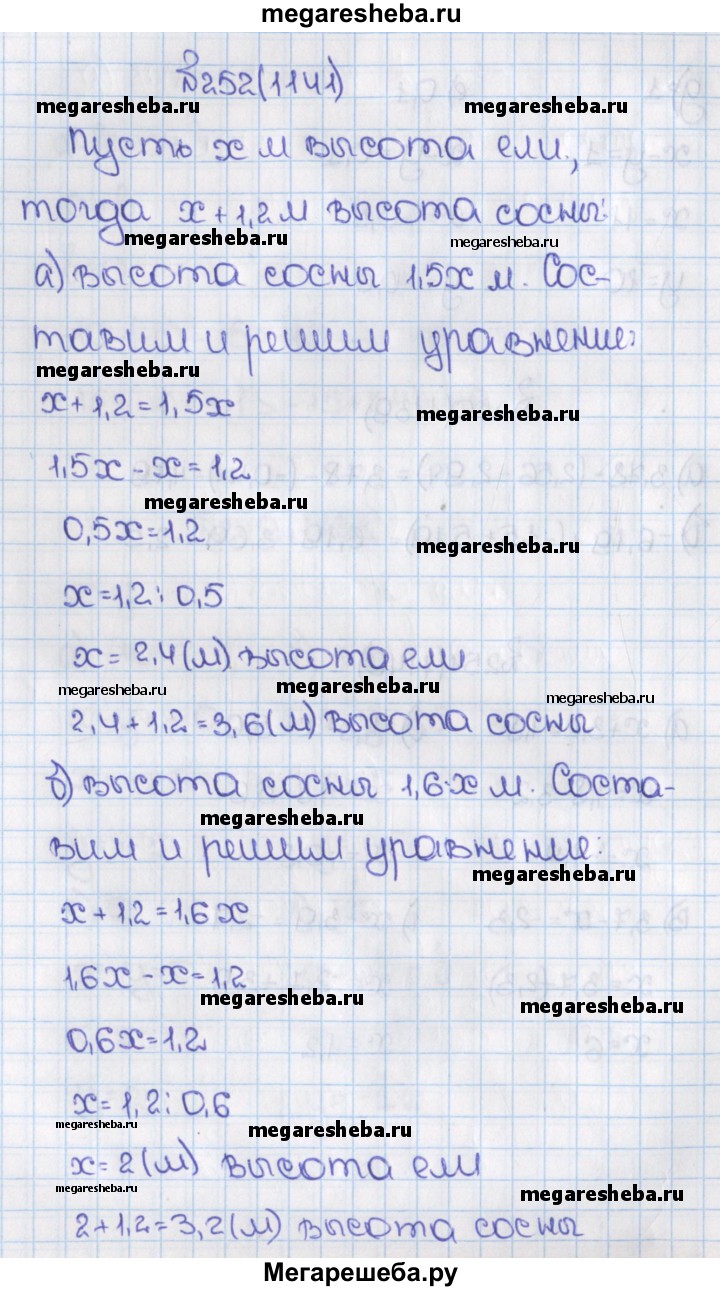 megaresheba.ru
№252(1141)
megaresheba.ru megaresheba.ru
Пусть x м высота ели,
тогда x+1,2м высота сосны:
megaresheba.ru megaresheba.ru
а) высота сосны 1,5x м. Сос-
тавим и решим уравнение:
megaresheba.ru
x+1,2=1,5x
megaresheba.ru
1,5x-x=1,2
megaresheba.ru
0,5x=1,2
megaresheba.ru
x=1,2:0,5
x=2,4(м) высота ели
megaresheba.ru megaresheba.ru megaresheba.ru
2,4+1,2=3,6(м) высота сосны
б) высота сосны 1,6·x м. Соста-
megaresheba.ru
вим и решим уравнение:
megaresheba.ru
x+1,2=1,6x
1,6x-x=1,2
megaresheba.ru megaresheba.ru
0,6x=1,2
x=1,2:0,6
megaresheba.ru megaresheba.ru
x=2(м) высота ели
megaresheba.ru megaresheba.ru
2+1,2=3,2(м) высота сосны
Мегарешеба.ру